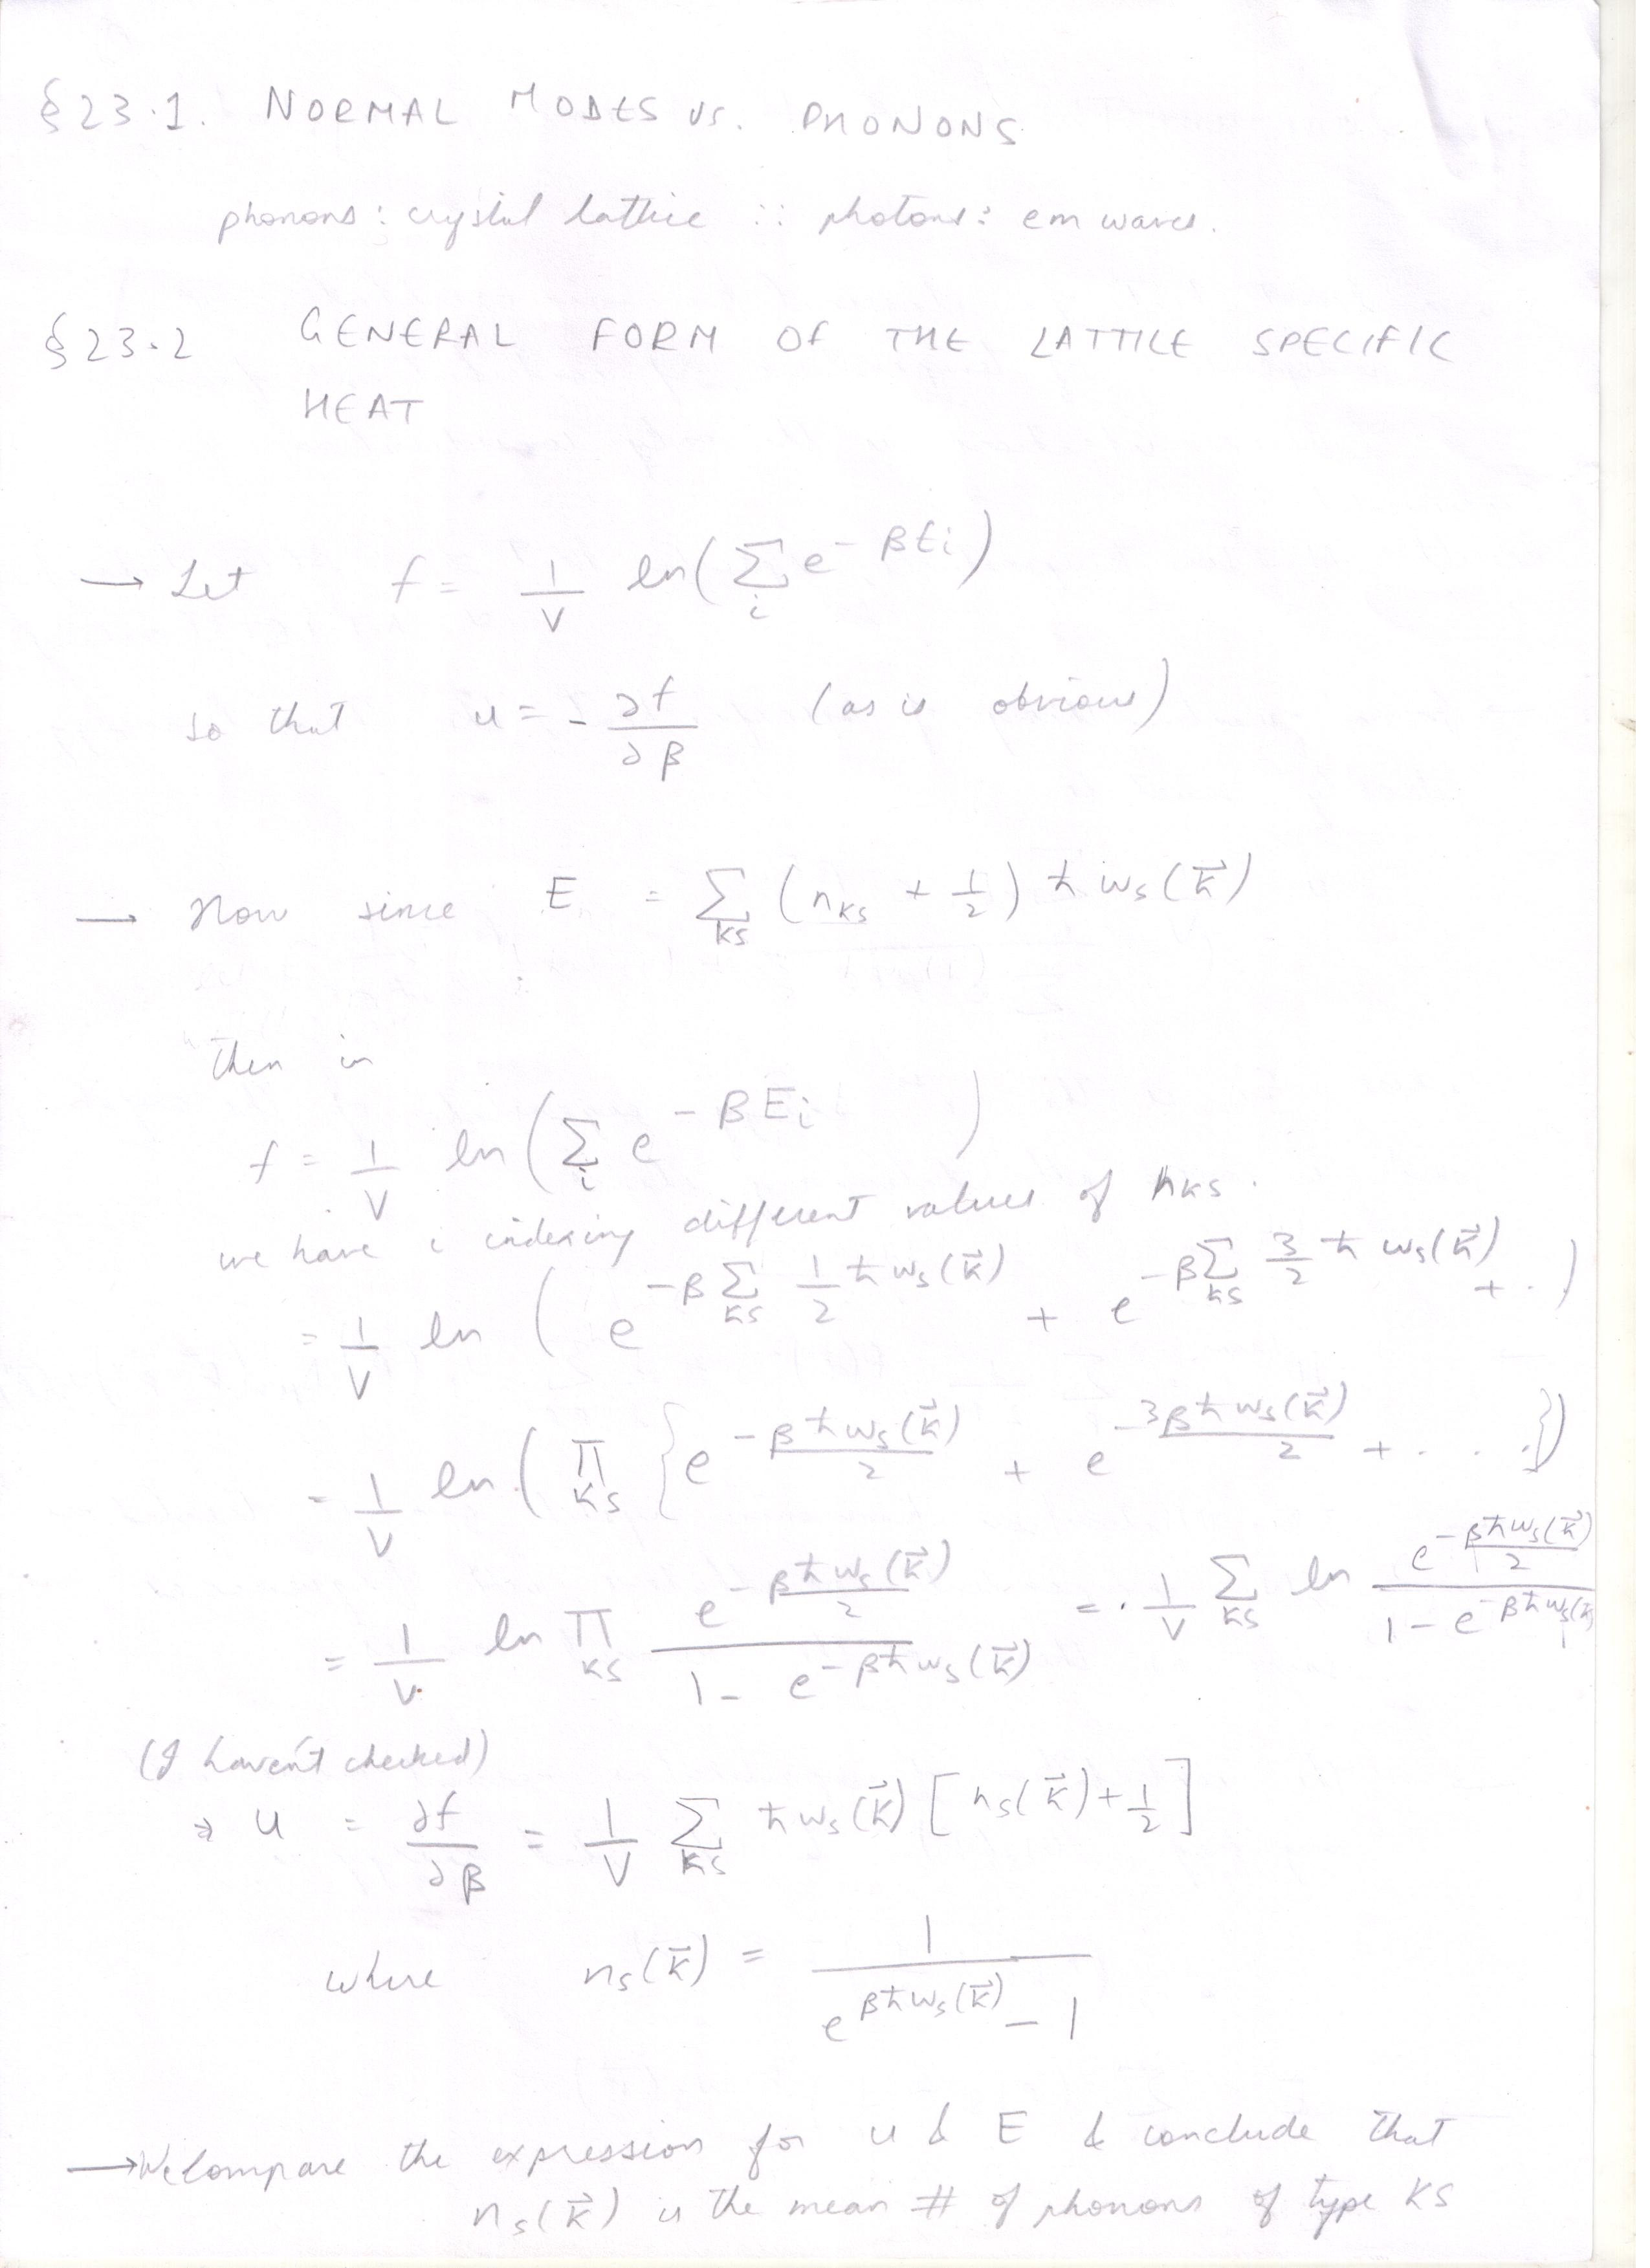 §23.1. NORMAL MODES vs. PHONONS
phonons : crystal lattice :: photons : em waves.
§23.2 GENERAL FORM OF THE LATTICE SPECIFIC
HEAT
→ Let f = 1/V ln(∑_i e^{-βEi})
so that u = - ∂f/∂β (as is obvious)
→ Now since E = ∑_{ks} (n_{ks} + 1/2) ħ ω_s(k⃗)
Then in
f = 1/V ln(∑_i e^{-βEi})
we have i indexing different values of n_{ks}.
= 1/V ln ( e^{-β∑_{ks} 1/2 ħω_s(k⃗)} + e^{-β∑_{ks} 3/2 ħω_s(k⃗)} + . )
= 1/V ln ( ∏_{ks} { e^{-βħω_s(k⃗)/2} + e^{-3βħω_s(k⃗)/2} + . . . } )
= 1/V ln ∏_{ks} e^{-βħω_s(k⃗)/2} / (1 - e^{-βħω_s(k⃗)}) = 1/V ∑_{ks} ln e^{-βħω_s(k⃗)/2} / (1 - e^{-βħω_s(k⃗)})
(I haven't checked)
⇒ u = ∂f/∂β = 1/V ∑_{ks} ħω_s(k⃗) [n_s(k⃗) + 1/2]
where n_s(k⃗) = 1 / (e^{βħω_s(k⃗)} - 1)
→ We compare the expression for u & E & conclude that
n_s(k⃗) is the mean # of phonons of type ks